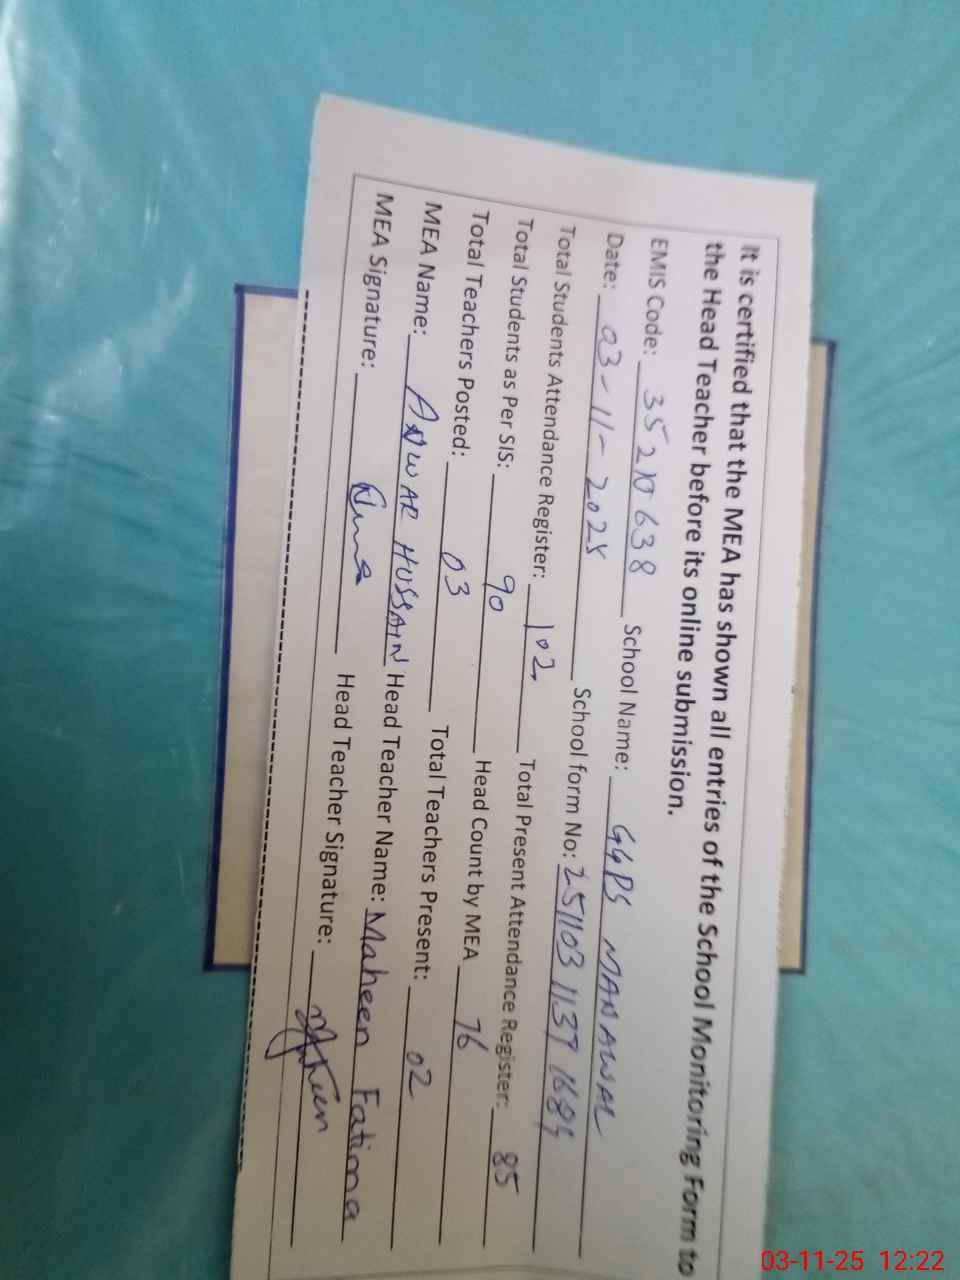 It is certified that the MEA has shown all entries of the School Monitoring Form to
the Head Teacher before its online submission.
EMIS Code: 35210638 School Name: GGPS MANAWAL
Date: 03-11-2025 School form No: 25110311371684
Total Students Attendance Register: 102 Total Present Attendance Register: 85
Total Students as Per SIS: 90 Head Count by MEA 76
Total Teachers Posted: 03 Total Teachers Present: 02
MEA Name: ANWAR HUSSAIN Head Teacher Name: Maheen Fatima
MEA Signature: Head Teacher Signature: Maheen
03-11-25 12:22